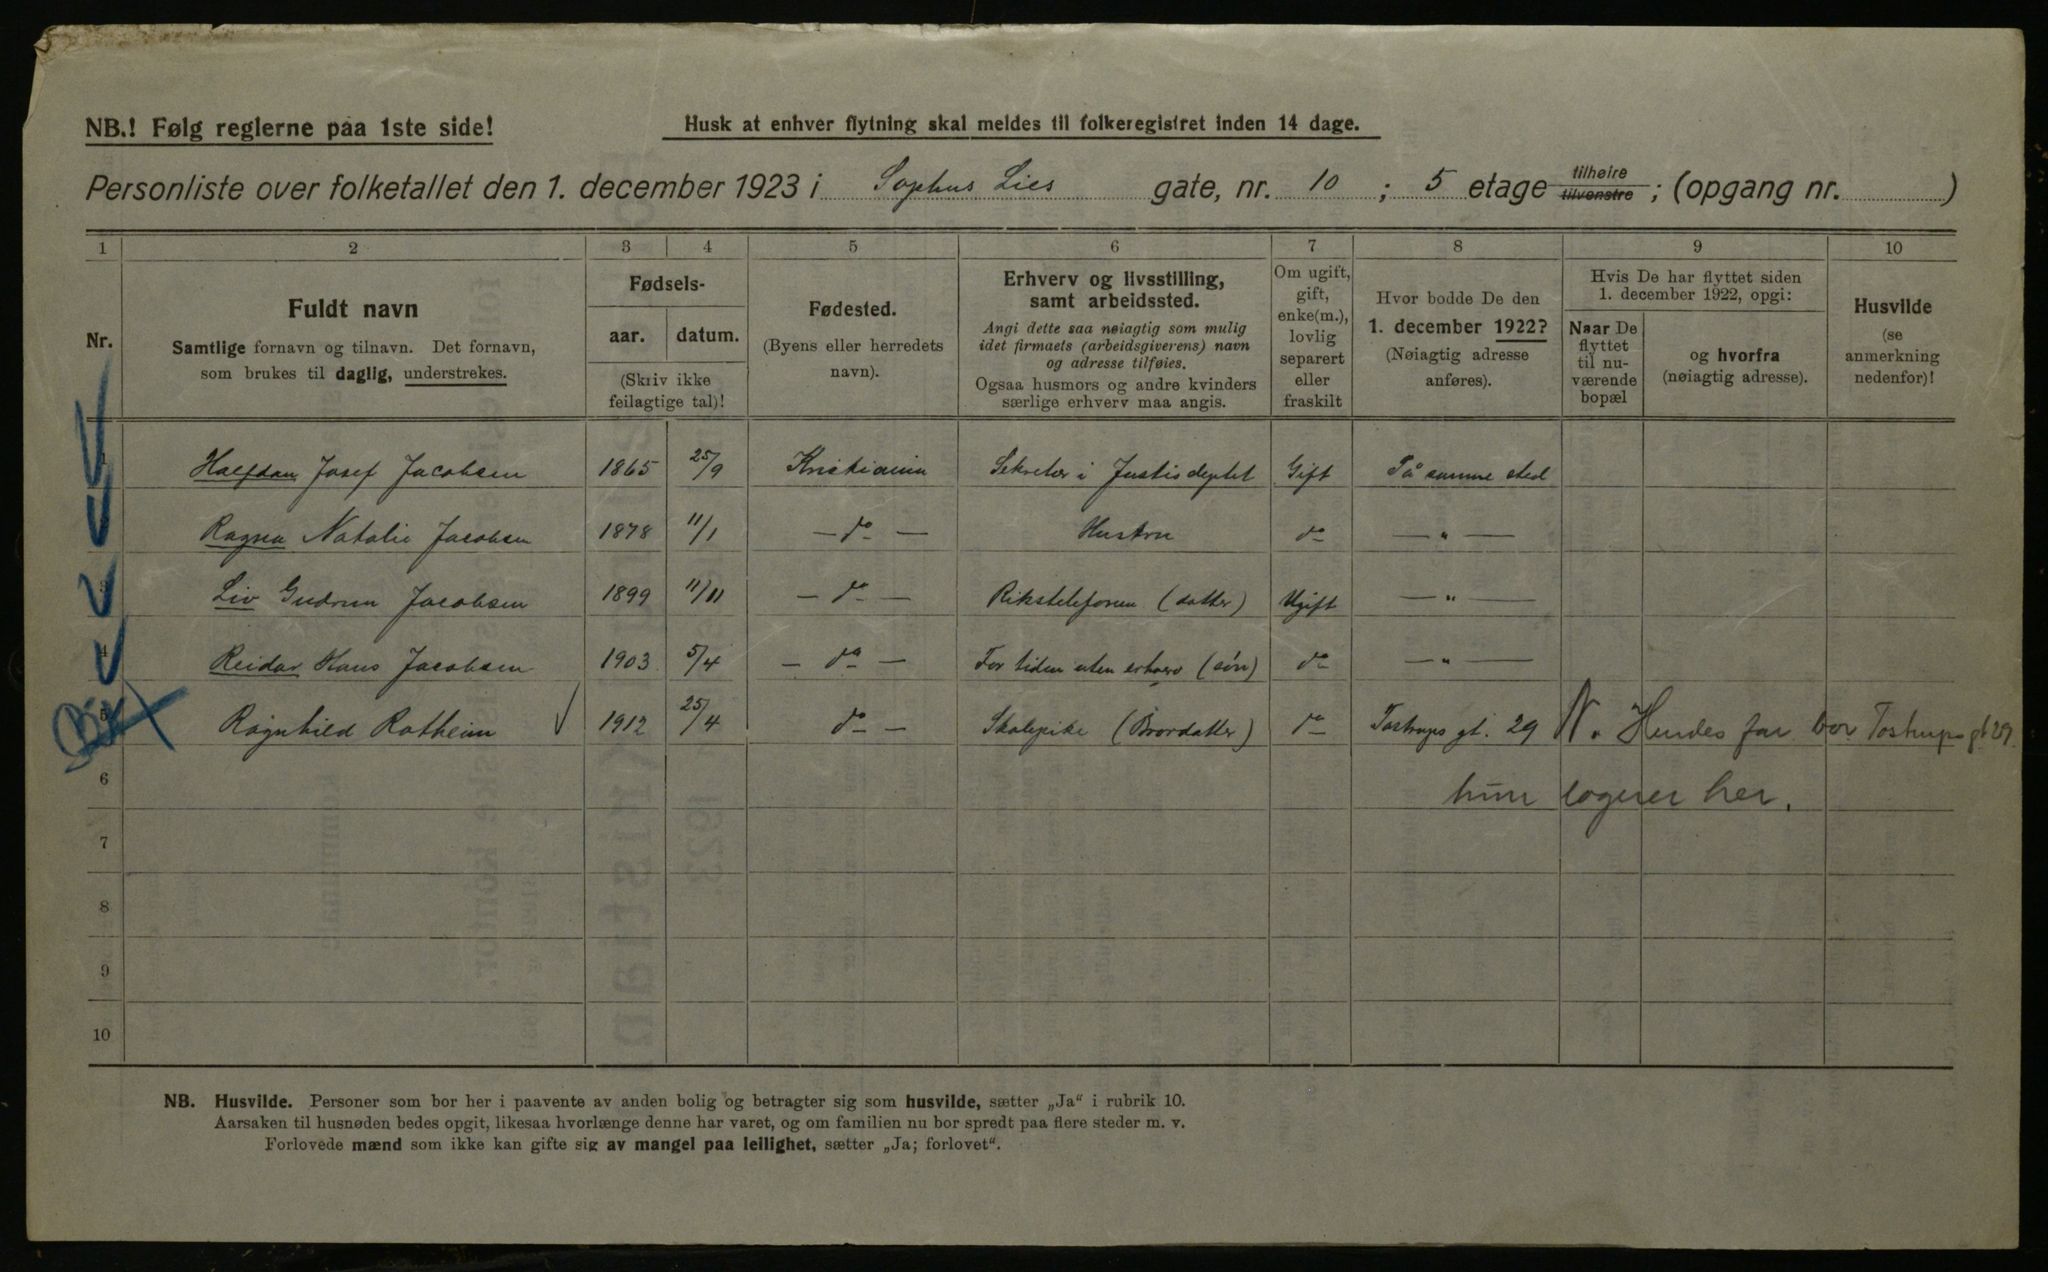 NB.! Følg reglerne paa 1ste side!
Husk at enhver flytning skal meldes til folkeregistret inden 14 dage.
Personliste over folketallet den 1. december 1923 i Sophus Lies gate, nr. 10 ; 5 etage tilhøire tilvenstre ; (opgang nr. )
1 2 3 4 5 6 7 8 9 10
Nr.
Fuldt navn
Samtlige fornavn og tilnavn. Det fornavn,
som brukes til daglig, understrekes.
Fødsels-
aar. datum.
(Skriv ikke
feilagtige tal)!
Fødested.
(Byens eller herredets
navn).
Erhverv og livsstilling,
samt arbeidssted.
Angi dette saa nøiagtig som mulig
idet firmaets (arbeidsgiverens) navn
og adresse tilføies.
Ogsaa husmors og andre kvinders
særlige erhverv maa angis.
Om ugift,
gift,
enke(m.),
lovlig
separert
eller
fraskilt
Hvor bodde De den
1. december 1922?
(Nøiagtig adresse
anføres).
Hvis De har flyttet siden
1. december 1922, opgi:
Naar De
flyttet
til nu-
værende
bopæl
og hvorfra
(nøiagtig adresse).
Husvilde
(se
anmerkning
nedenfor)!
Halfdan Josef Jacobsen 1865 25/9 Kristiania Sekretær i Justisdeptet Gift På samme sted
Ragna Natalie Jacobsen 1878 11/1 — do — Hustru do — " —
3 Liv Gudrun Jacobsen 1899 11/11 — do — Rikstelefonen (datter) Ugift — " —
4 Reidar Hans Jacobsen 1903 5/4 — do — For tiden uten erhverv (sön) do — " —
5 Ragnhild Rotheim 1912 25/4 do — Skolepike (Brordatter) do Tostrups gt. 29 N. Hendes far bor Tostrups gt 29
6 hun logerer her.
7
8
9
10
NB. Husvilde. Personer som bor her i paavente av anden bolig og betragter sig som husvilde, sætter „Ja“ i rubrik 10.
Aarsaken til husnøden bedes opgit, likesaa hvorlænge denne har varet, og om familien nu bor spredt paa flere steder m. v.
Forlovede mænd som ikke kan gifte sig av mangel paa leilighet, sætter „Ja; forlovet“.